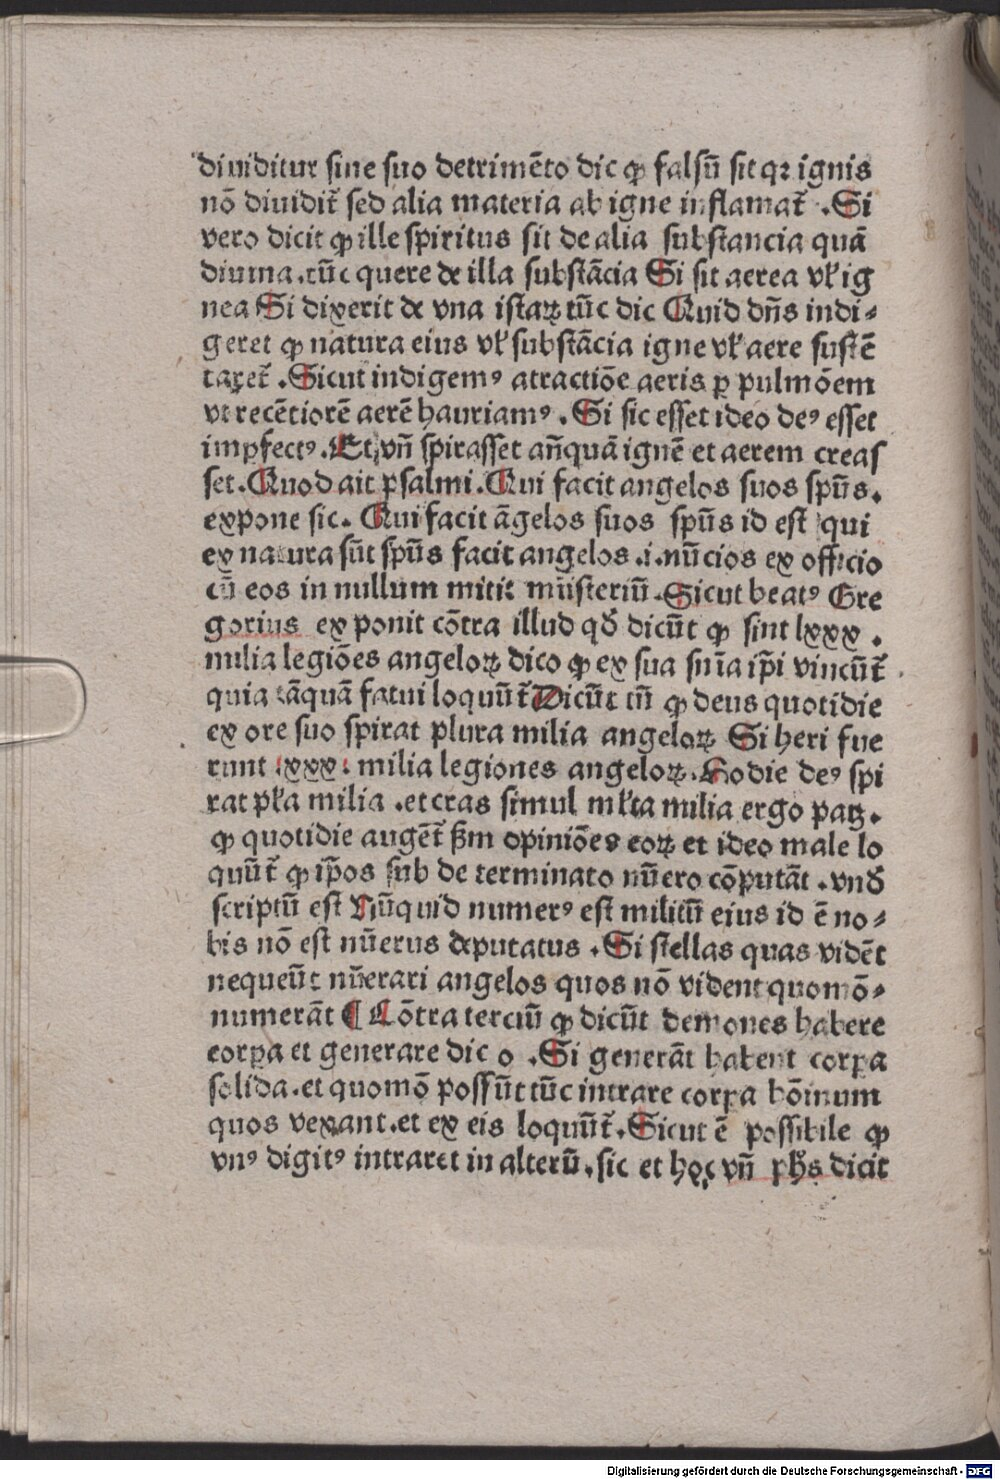 diuiditur sine suo detrimēto dic ꝙ falsū sit qꝛ ignis
nō diuidit᷑ sed alia materia ab igne inflamat᷑ .Si
vero dicit ꝙ ille spiritus sit de alia substancia quā
diuina.tūc quere de illa substācia Si sit aerea vl̕ ig
nea Si dixerit de vna istaꝝ tūc dic Quid dn̄s indi⸗
geret ꝙ natura eius vl̕ substācia igne vl̕ aere sustē
taret᷑ .Sicut indigemꝰ atractiōe aeris ꝑ pulmōem
vt recētiorē aerē hauriamꝰ .Si sic esset ideo deꝰ esset
imꝑfectꝰ.Et vn̄ spirasset an̄quā ignē et aerem creas
set.Quod ait psalmi.Qui facit angelos suos sp̄us.
expone sic. Qui facit āgelos suos sp̄us id est qui
ex natura sūt sp̄us facit angelos .i.nūcios ex officio
cū eos in nullum mittit mīisteriū.Sicut beatꝰ Gre
gorius exponit cōtra illud qd̕ dicūt ꝙ sint lxxx .
milia legiōes angeloꝝ dico ꝙ ex sua sn̄ia ip̄i vincūt᷑
quia tāquā fatui loquūt᷑ Dicūt tn̄ ꝙ deus quotidie
ex ore suo spirat plura milia angeloꝝ Si heri fue
runt lxxx. milia legiones angeloꝝ.Hodie deꝰ spi
rat pl̕a milia .et cras simul ml̕ta milia ergo patꝫ.
ꝙ quotidie auget᷑ ẜm opiniōes eoꝝ et ideo male lo
quūt᷑ ꝙ ip̄os sub determinato nūero cōputāt .vnd̕
scriptū est Nūquid numerꝰ est militū eius id ē no⸗
bis nō est nūerus deputatus .Si stellas quas vidēt
nequeūt nūerari angelos quos nō vident quomō⸗
numerāt ¶ Cōtra terciū ꝙ dicūt demones habere
corꝑa et generare dico .Si generāt habent corꝑa
solida.et quomō possūt tūc intrare corꝑa hōinum
quos vexant.et ex eis loquūt᷑.Sicut ē possibile ꝙ
vnꝰ digitꝰ intraret in alterū.sic et hoc vn̄ ph̄s dicit
Digitalisierung gefördert durch die Deutsche Forschungsgemeinschaft - DFG